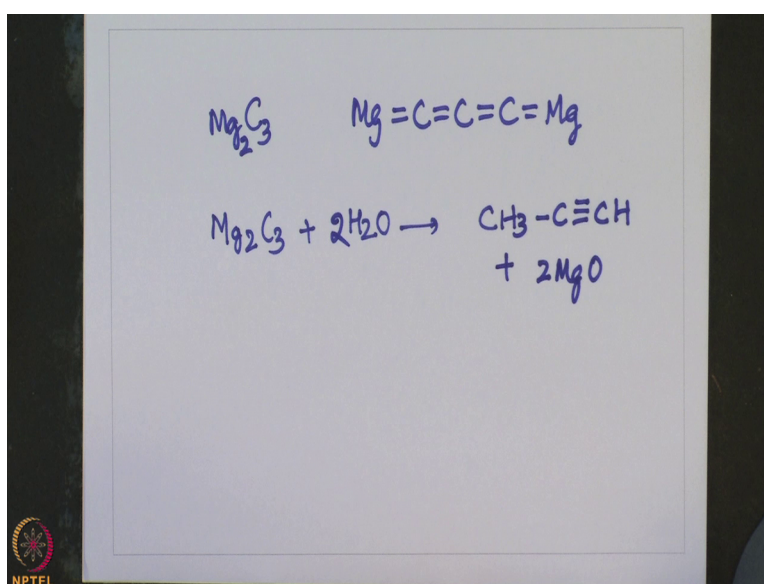 Mg₂C₃ Mg=C=C=C=Mg
Mg₂C₃ + 2H₂O → CH₃-C≡CH
+ 2MgO
NPTEL